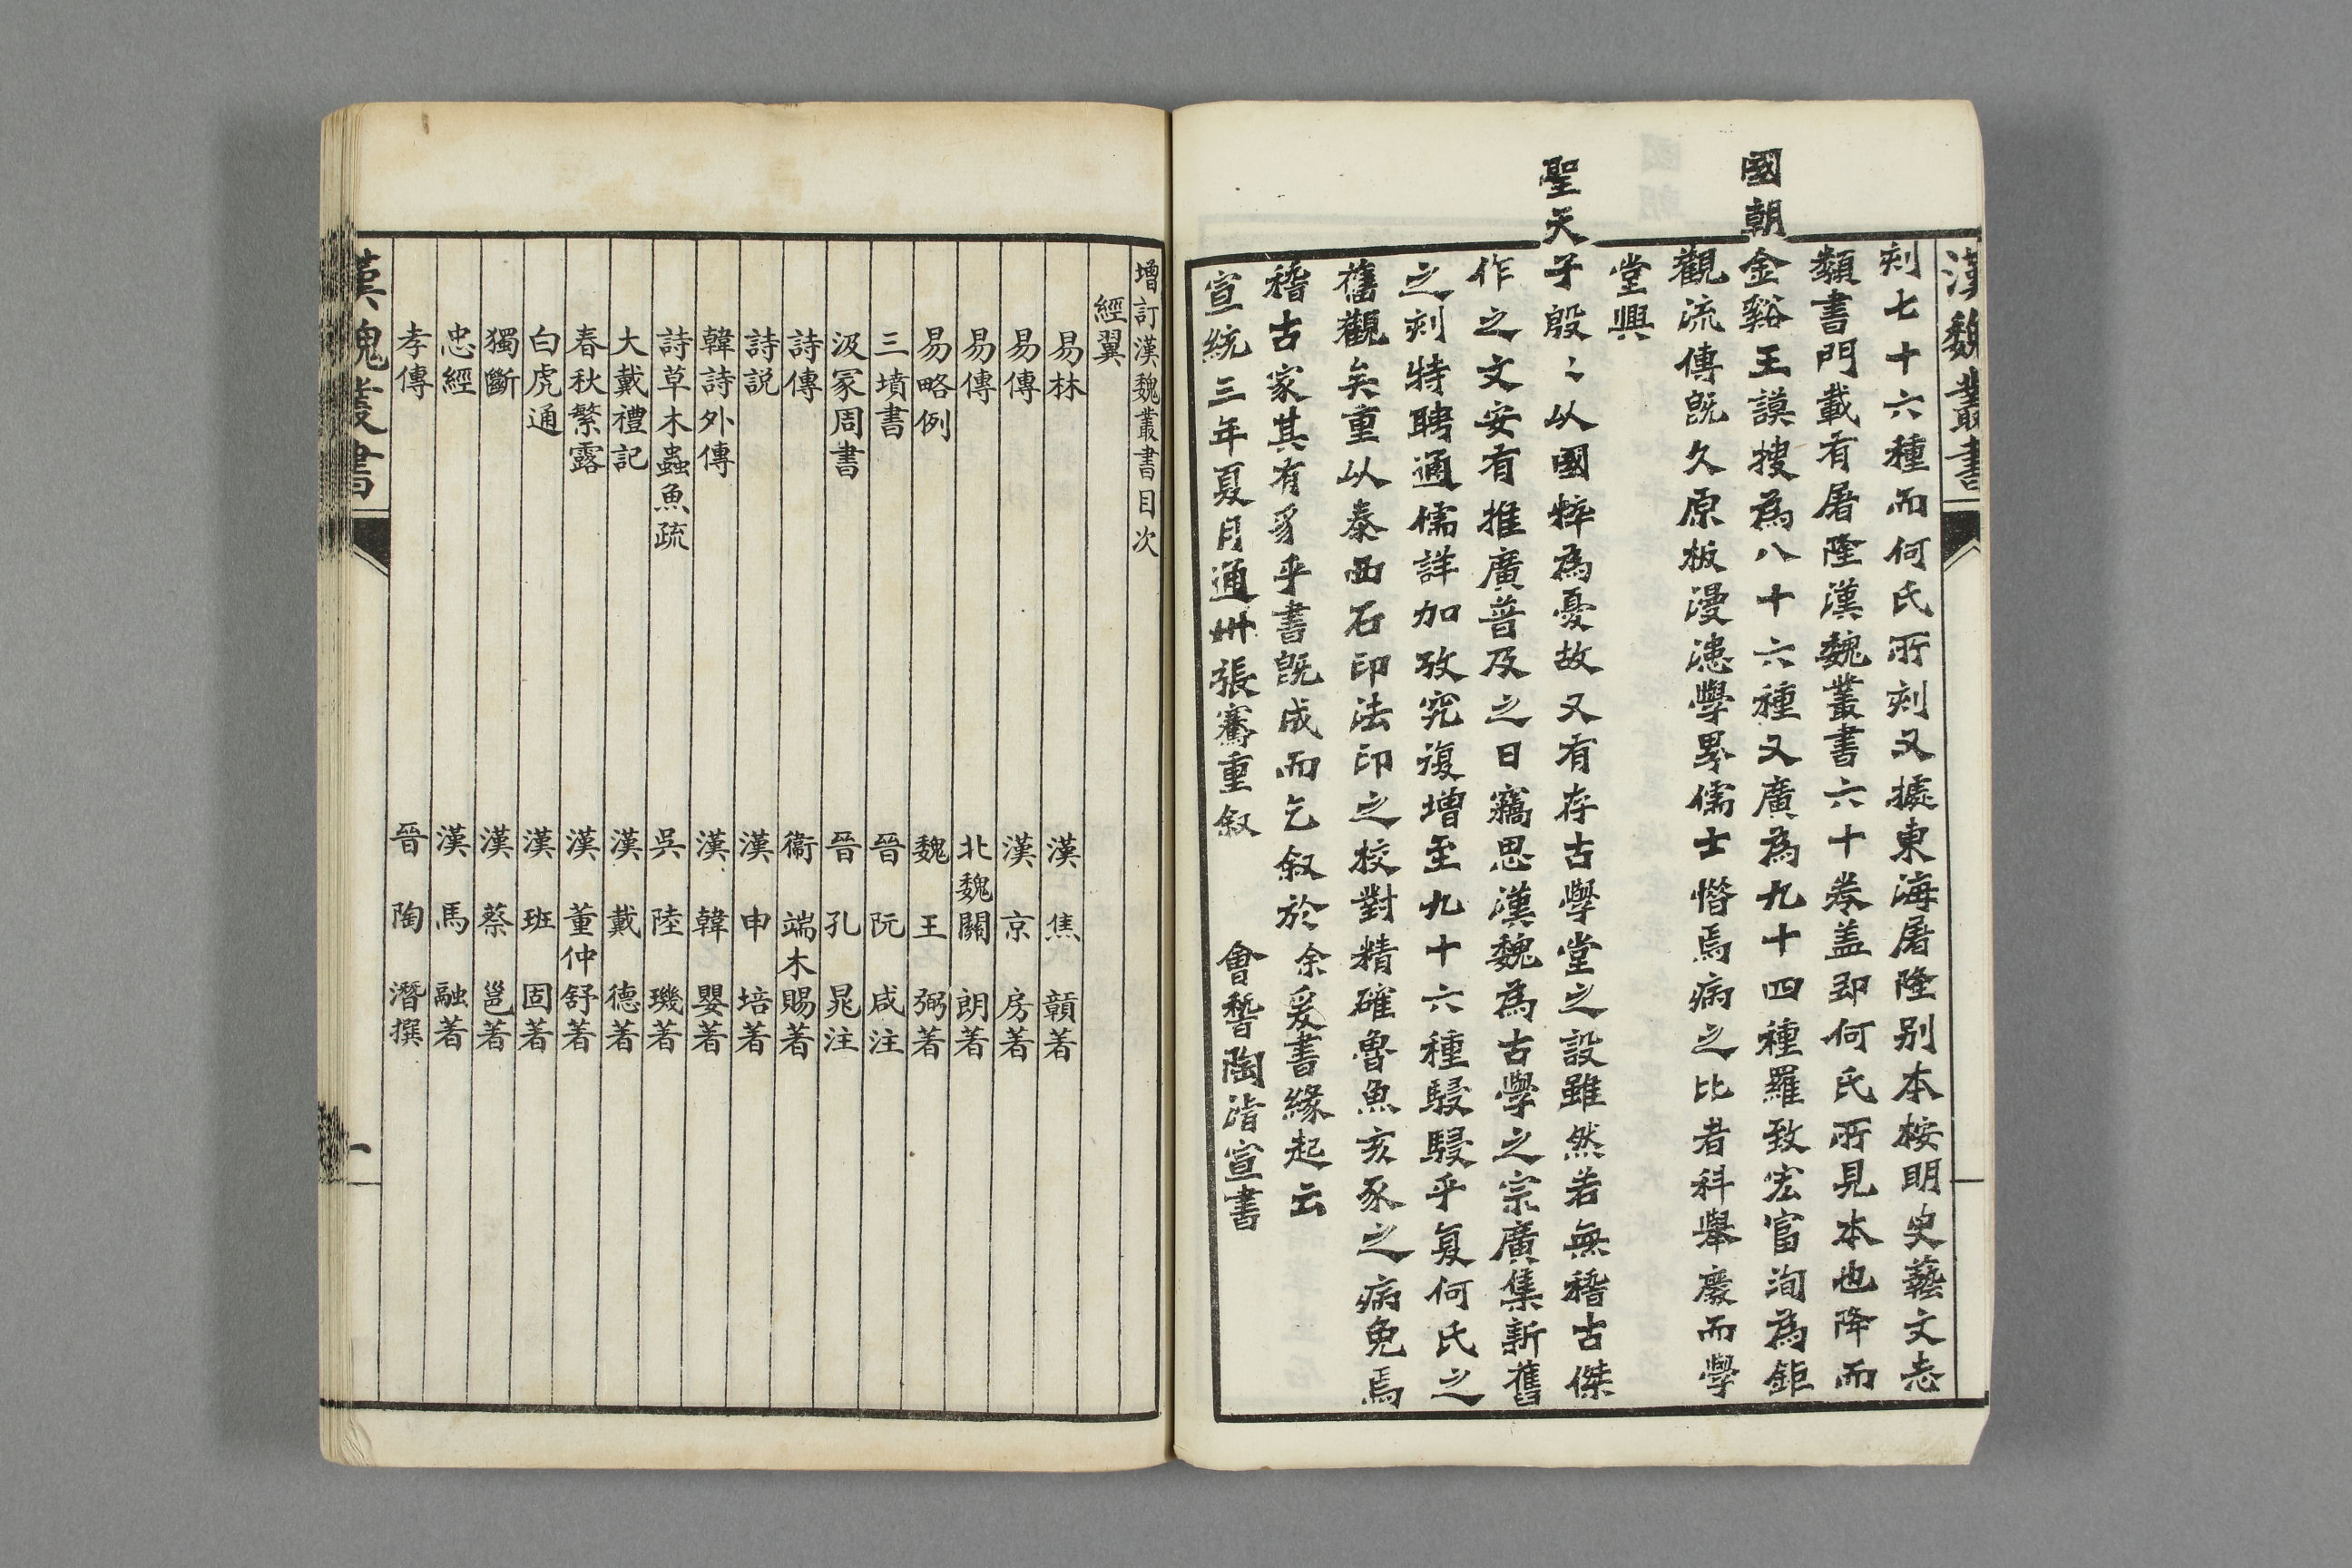 漢魏叢書
刻七十六種而何氏所刻又據東海屠隆別本桉明史藝文志
類書門載有屠隆漢魏叢書六十卷盖即何氏所見本也降而
國朝金谿王謨搜為八十六種又廣為九十四種羅致宏富洵為鉅
觀流傳旣久原板漫漶學界儒士惜焉病之比者科舉廢而學
堂興
聖天子殷〻以國粹為憂故又有存古學堂之設雖然若無稽古傑
作之文安有推廣普及之日竊思漢魏為古學之宗廣集新舊
之刻特聘通儒詳加攷究復增至九十六種駸駸乎复何氏之
舊觀矣重以泰西石印法印之校對精確魯魚亥豕之病免焉
稽古家其有豸乎書旣成而乞叙於余爰書緣起云
宣統三年夏月通州張騫重叙 會嵇陶濬宣書
增訂漢魏叢書目次
經翼
易林 漢 焦 贛著
易傳 漢 京 房著
易傳 北魏關 朗著
易略例 魏 王 弼著
三墳書 晉 阮 咸注
汲冢周書 晉 孔 晁注
詩傳 衞 端木賜著
詩説 漢 申 培著
韓詩外傳 漢 韓 嬰著
詩草木蟲魚疏 吳 陸 璣著
大戴禮記 漢 戴 德著
春秋繁露 漢 董仲舒著
白虎通 漢 班 固著
獨斷 漢 蔡 邕著
忠經 漢 馬 融著
孝傳 晉 陶 潛撰
漢魏叢書 一